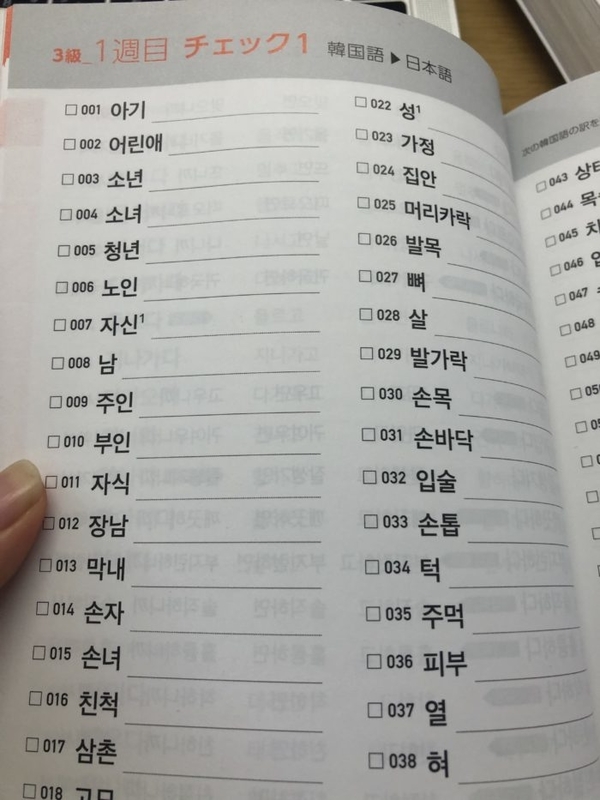 3級_1週目 チェック1 韓国語▶日本語
001 아기
002 어린애
003 소년
004 소녀
005 청년
006 노인
007 자신1
008 남
009 주인
010 부인
011 자식
012 장남
013 막내
014 손자
015 손녀
016 친척
017 삼촌
018 고모
022 성1
023 가정
024 집안
025 머리카락
026 발목
027 뼈
028 살
029 발가락
030 손목
031 손바닥
032 입술
033 손톱
034 턱
035 주먹
036 피부
037 열
038 혀
次の韓国語の訳を
043
044
045
046
047
048
049